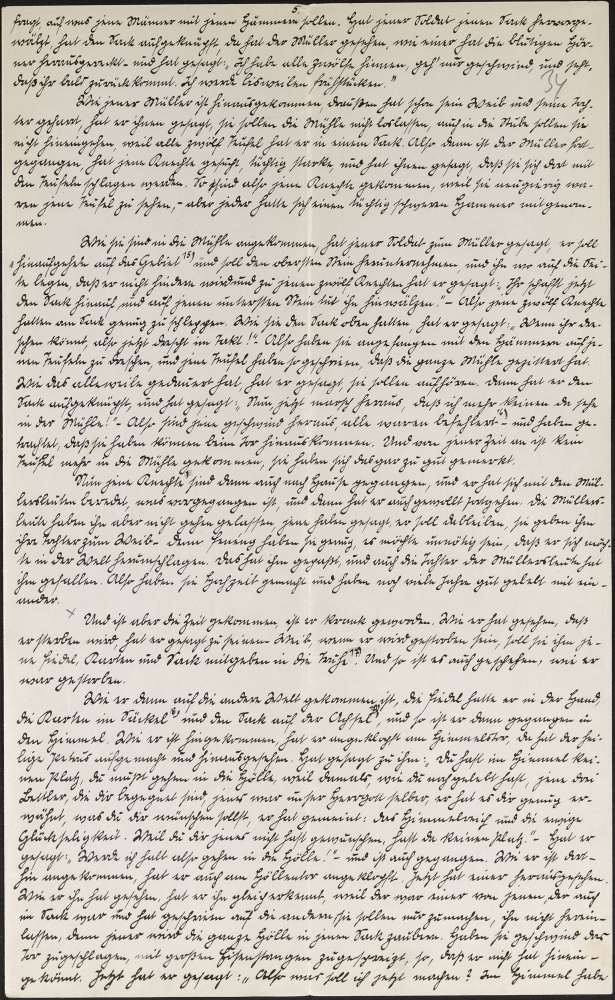 5.
fragt auch was jene Männer mit jenen Hämmern sollen. Hat jener Soldat jenen Sack hervorge-
wälzt, hat den Sack aufgeknüpft, da hat der Müller gesehen, wie einer hat die blutigen Hör-
ner herausgereckt - und hat gesagt: „Ich habe alle zwölfe hinnen, geh' nur geschwind, und seht,
daß ihr bald zurückkommt. Ich werde bisweilen frühstücken."
34
Wie jener Müller ist hinausgekommen, draußen hat schon sein Weib und seine Toch-
ter geharrt, hat er ihnen gesagt, sie sollen die Mühle nicht loslassen, auch in die Stube sollen sie
nicht hineingehen, weil alle zwölf Teufel hat er in einem Sack. Also dann ist der Müller fort-
gegangen, hat jene Knechte gesucht, tüchtig starke, und hat ihnen gesagt, daß sie sich dort mit
den Teufeln schlagen werden. So sind also jene Knechte gekommen, weil sie neugierig wa-
ren jene Teufel zu sehen, - aber jeder hatte sich einen tüchtig schweren Hammer mitgenom-
men.
Wie sie sind in die Mühle angekommen, hat jener Soldat zum Müller gesagt, er soll
hinaufgehen auf das Gebiet 15) und soll den obersten Stein herunternehmen, und ihn wo auf die Sei-
te legen, daß er nicht hindern wird und zu jenen zwölf Knechten hat er gesagt: „Ihr schafft jetzt
den Sack hinauf und auf jenen untersten Stein tut ihn hinwälzen." - Also jene zwölf Knechte
hatten am Sack genug zu schleppen. Wie sie den Sack oben hatten, hat er gesagt: „Wenn ihr dre-
schen könnt, also jetzt drescht im Takt!" Also haben sie angefangen mit den Hämmern auf je-
nen Teufeln zu dreschen, und jene Teufel haben so geschrieen, daß die ganze Mühle gezittert hat.
Wie das alleweile gedauert hat, hat er gesagt, sie sollen aufhören. Dann hat er den
Sack aufgeknüpft, und hat gesagt: „Nun jetzt marsch heraus, daß ich mehr keinen da sehe
in der Mühle!" - Also sind jene geschwind heraus, alle waren - und haben ge-
trachtet, daß sie haben können beim Tor hinauskommen. Und von jener Zeit an ist kein
Teufel mehr in die Mühle gekommen, sie haben sich das gar zu gut gemerkt.
Nun jene Knechte sind dann auch nach Hause gegangen, und er hat sich mit den Mül-
lersleuten beredet, was vorgegangen ist, und dann hat er auch gewollt fortgehen. Die Müllers-
leute haben ihn aber nicht gehen gelassen, jene haben gesagt, er soll dableiben, sie geben ihm
ihre Tochter zum Weib - denn haben sie genug, es möchte unnötig sein, daß er sich möch-
te in der Welt herumschlagen. Das hat ihm gepaßt, und auch die Tochter der Müllersleute hat
ihm gefallen. Also haben sie Hochzeit gemacht und haben noch viele Jahre gut gelebt mit ein-
ander.
Und ist aber die Zeit gekommen, ist er krank geworden. Wie er hat gesehen, daß
er sterben wird, hat er gesagt zu seinem Weib, wenn er wird gestorben sein, soll sie ihm je-
ne Fiedel, Karten und Sack mitgeben in die Truhe. Und so ist es auch geschehen, wie er
war gestorben.
Wie er dann auf die andere Welt gekommen ist, die Fiedel hatte er in der Hand,
die Karten im Säckel und den Sack auf der Achsel, und so ist er dann gegangen in
den Himmel. Wie er ist hingekommen, hat er angeklopft am Himmelstor, da hat der hei-
lige Petrus aufgemacht und hinausgesehen. Hat gesagt zu ihm: „Du hast im Himmel kei-
nen Platz, du mußt gehen in die Hölle, weil damals, wie du noch gelebt hast, jene drei
Bettler, die dir begegnet sind, jenes war unser Herrgott selber, er hat es dir genug er-
wähnt, was du dir wünschen sollst, er hat gemeint: das Himmelreich und die ewige
Glückseligkeit. Weil du dir jenes nicht hast gewunschen, hast du keinen Platz." - Hat er
gesagt: „Werde ich halt also gehen in die Hölle!" - und ist auch gegangen. Wie er ist dort-
hin angekommen, hat er auch am Höllentor angeklopft. Jetzt hat einer herausgesehen.
Wie er ihn hat gesehen, hat er ihn gleich erkennt, weil der war einer von jenen, der auch
im Sack war und hat geschrieen auf die andern, sie sollen nur zumachen, ihn nicht herein-
lassen, denn jener wird die ganze Hölle in jenen Sack zaubern. Haben sie geschwind das
Tor zugeschlagen, mit großen Eisenstangen zugespreizt, so, daß er nicht hat hinein-
gekönnt. Jetzt hat er gesagt: „Also was soll ich jetzt machen? Im Himmel habe